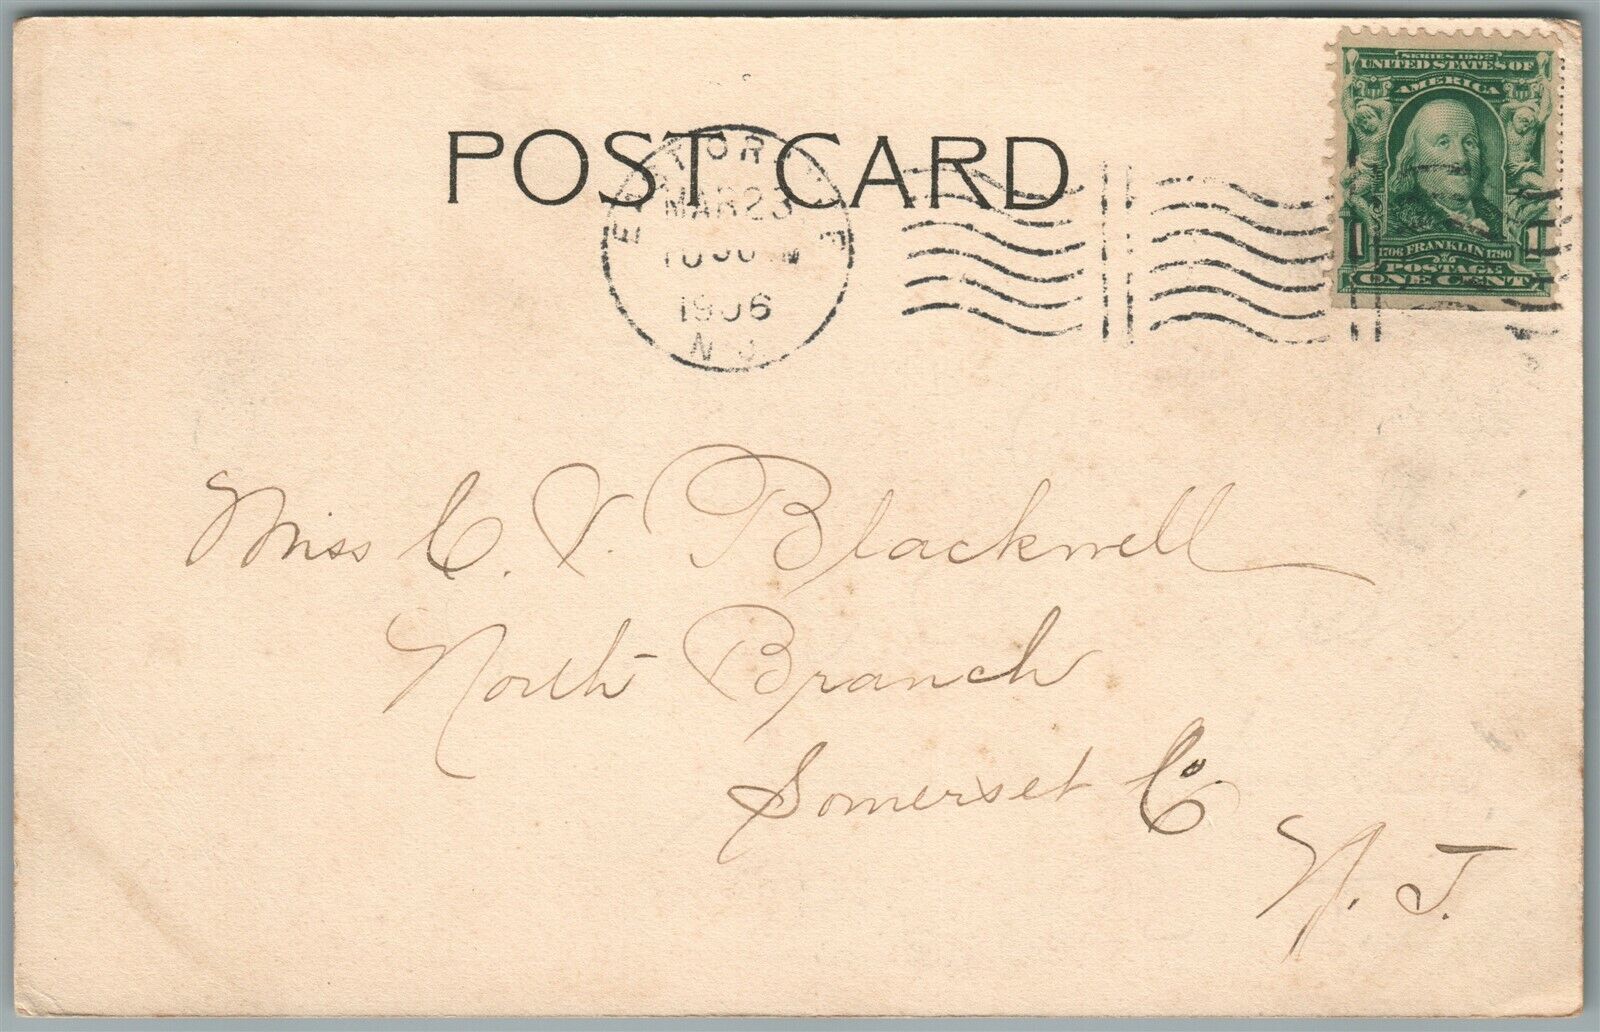 POST CARD
EAST ORANGE
MAR 23
1906
N.J.
SERIES 1902
UNITED STATES OF
AMERICA
1706 FRANKLIN 1790
1 1
POSTAGE
ONE CENT
Miss C. V. Blackwell
North Branch
Somerset Co
N. J.